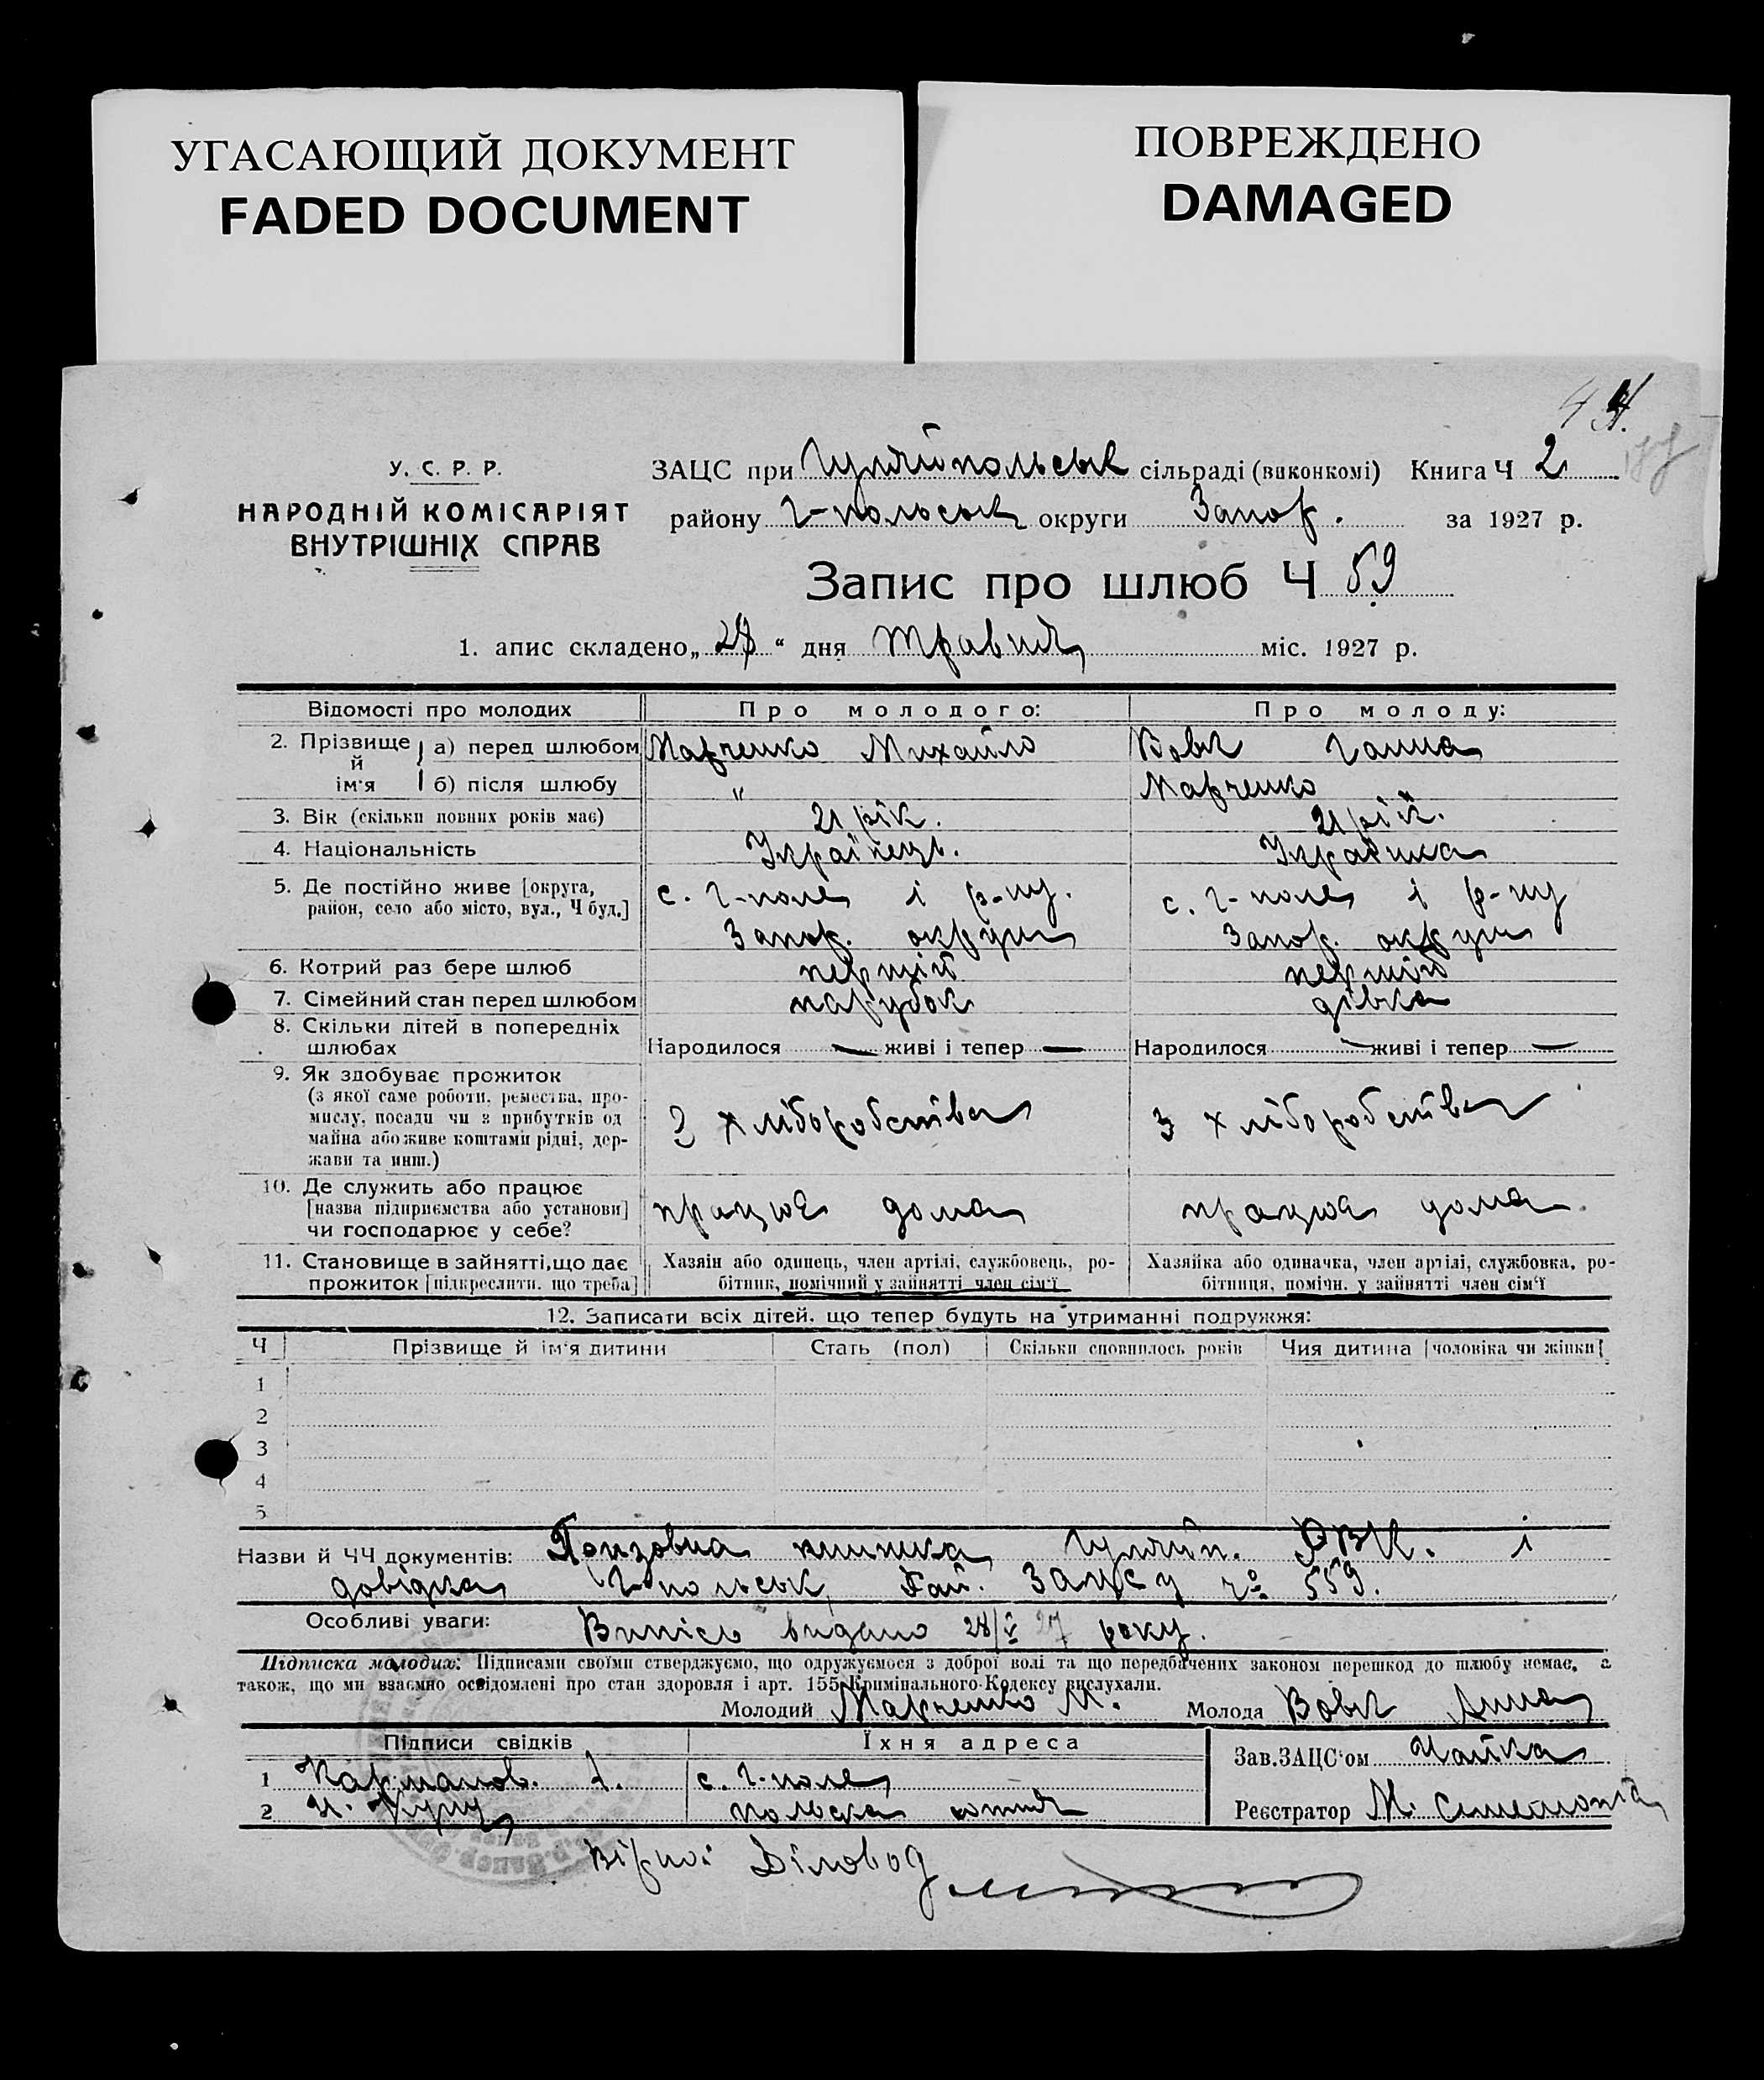 УГАСАЮЩИЙ ДОКУМЕНТ
FADED DOCUMENT
ПОВРЕЖДЕНО
DAMAGED
У. С. Р. Р.
НАРОДНІЙ КОМІСАРІЯТ
ВНУТРІШНІХ СПРАВ
ЗАЦС при Гуляйпольськ сільраді (виконкомі) Книга Ч 2
району Г-польськ округи Запор. за 1927 р.
Запис про шлюб Ч 59
1. апис складено „28“ дня Травня міс. 1927 р.
Відомості про молодих Про молодого: Про молоду:
2. Прізвище й ім'я а) перед шлюбом Марченко Михайло Вовк Ганна
б) після шлюбу " Марченко
3. Вік (скільки повних років має) 21 рік. 21 рік.
4. Національність Українець. Українка
5. Де постійно живе [округа, район, село або місто, вул., Ч буд.] с. Г-поле і р-ну. с. Г-поле і р-ну
Запор. округи Запор. округи
6. Котрий раз бере шлюб перший перший
7. Сімейний стан перед шлюбом парубок дівка
8. Скільки дітей в попередніх шлюбах Народилося — живі і тепер — Народилося — живі і тепер —
9. Як здобуває прожиток
(з якої саме роботи, ремества, про-
мислу, посади чи з прибутків од
майна або живе коштами рідні, дер-
жави та инш.)
З хліборобства З хліборобства
10. Де служить або працює
[назва підприємства або установи]
чи господарює у себе?
працює дома працює дома
11. Становище в зайнятті, що дає
прожиток [підкреслити, що треба]
Хазяїн або одинець, член артілі, службовець, ро-
бітник, помічний у зайнятті член сім'ї
Хазяйка або одиначка, член артілі, службовка, ро-
бітниця, помічн. у зайнятті член сім'ї
12. Записати всіх дітей, що тепер будуть на утриманні подружжя:
Ч Прізвище й ім'я дитини Стать (пол) Скільки сповнилось років Чия дитина [чоловіка чи жінки]
1
2
3
4
5
Назви й ЧЧ документів: книжка Гуляйп. РВК. і
довідка Г-польськ Рай. Загсу № 559.
Особливі уваги: Випись видано 28/V 27 року.
Підписка молодих: Підписами своїми стверджуємо, що одружуємося з доброї волі та що передбачених законом перешкод до шлюбу немає, а
також, що ми взаємно освідомлені про стан здоровля і арт. 155 Кримінального Кодексу вислухали.
Молодий Марченко М. Молода Вовк Анна
Підписи свідків Їхня адреса
1 Карманов. с. Г-поле
2 польска
Зав. ЗАЦС'ом Чайка
Реєстратор М.
Вірно: Діловод